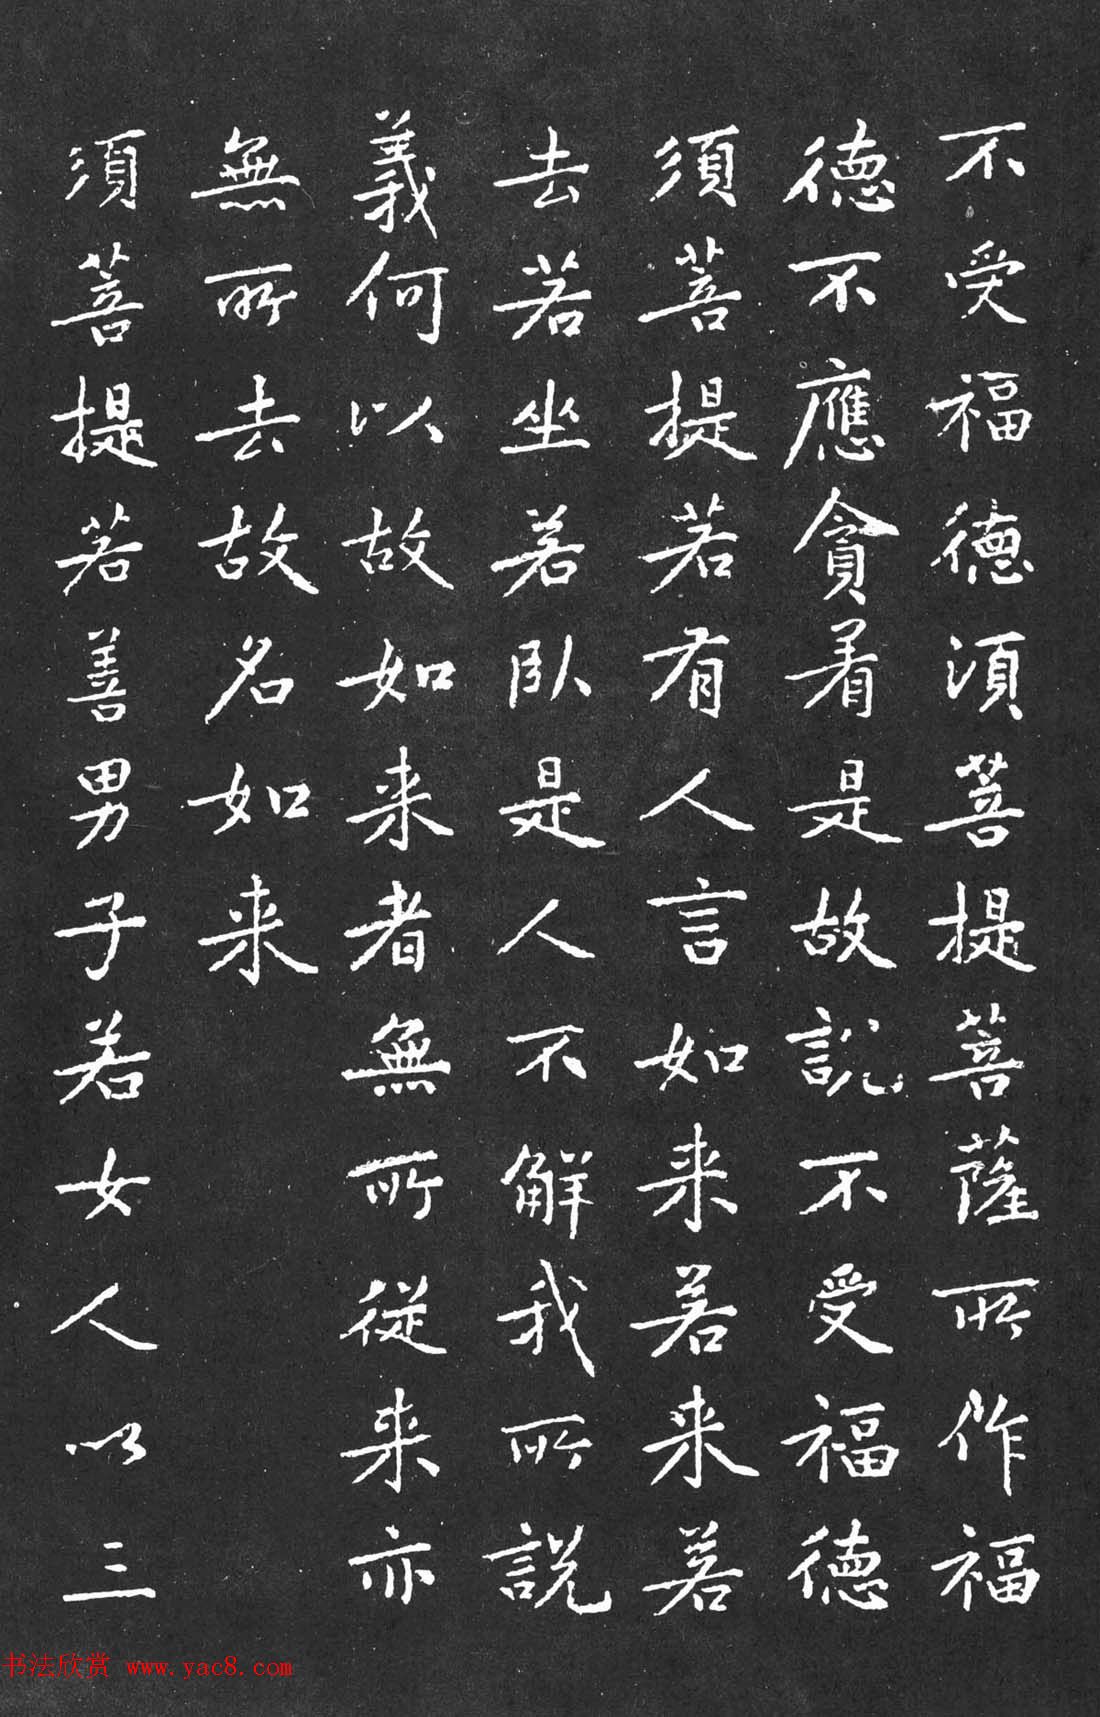 不受福德須菩提菩薩所作福
德不應貪着是故說不受福德
須菩提若有人言如来若来若
去若坐若臥是人不解我所說
義何以故如来者無所從来亦
無所去故名如来
須菩提若善男子若女人以三
书法欣赏 www.yac8.com